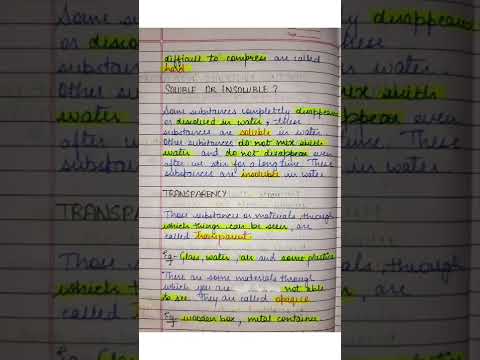 difficult to compress are called
hard
SOLUBLE OR INSOLUBLE?
Some substances completely disappear
or dissolved in water, these
substances are soluble in water.
Other substances do not mix with
water and do not disappear even
after we stir for a long time. These
substances are insoluble in water
TRANSPARENCY
Those substances or materials through
which things can be seen, are
called transparent.
Eg- Glass, water, air and some plastics
There are some materials through
which you are not able
to see. They are called opaque
Eg- wooden box, metal container